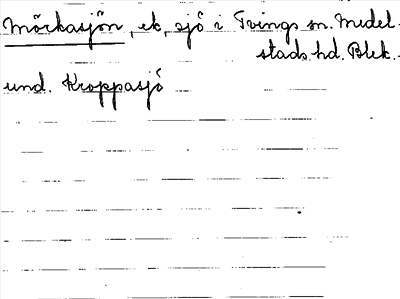 Mörkasjön, ek, sjö i Tvings sn. Medel-
stads hd. Blek.
und. Kroppasjö